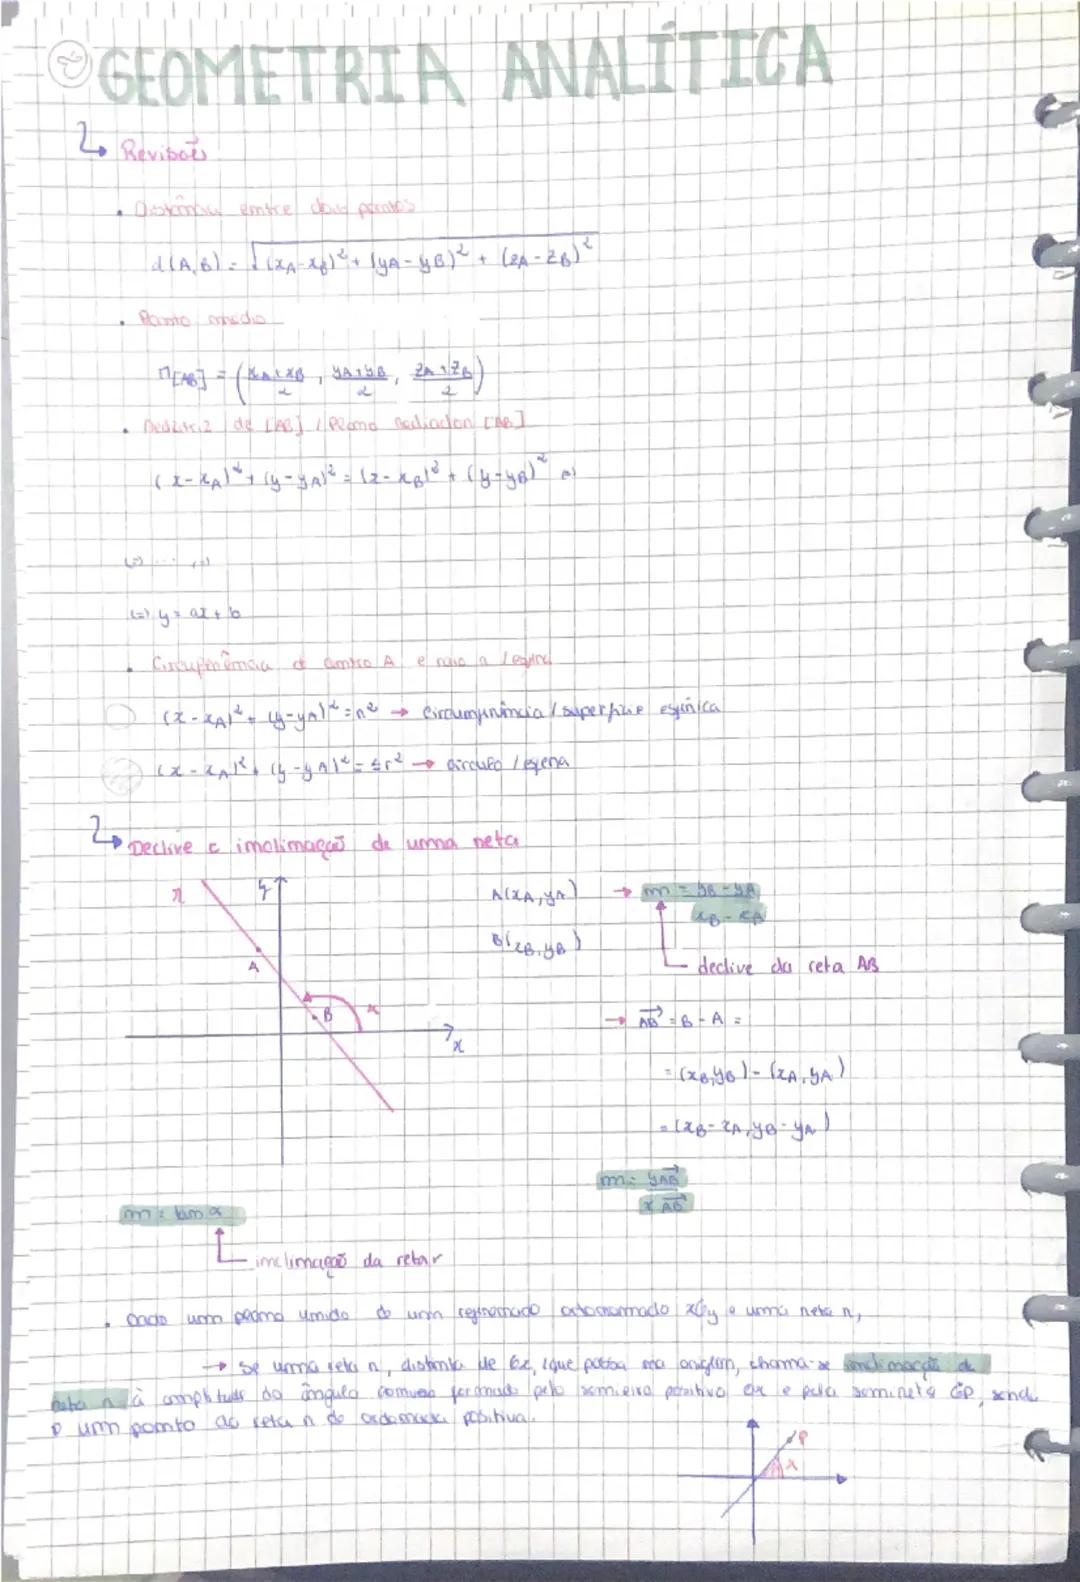 GEOMETRIA ANALÍTICA
Revisões
• Distância entre dois pontos
d(A,B) = √(xA-xB)² + (yA-yB)² + (zA-zB)²
• Ponto médio
M[AB] = (xA+xB/2, yA+yB/2, zA+zB/2)
• Mediatriz de [AB] / Plano mediador [AB]
(x-xA)² + (y-yA)² = (x-xB)² + (y-yB)² (=)
(=) ... (=)
(=) y = ax + b
• Circunferência de centro A e raio r /
(x-xA)² + (y-yA)² = r² → circunferência / superfície esférica
(x-xA)² + (y-yA)² = ≤ r² → círculo / esfera
Declive e inclinação de uma reta
r
y
A(xA, yA) → m = yB-yA
xB-xA
B(xB, yB)
A
declive da reta AB
B
α
x
→ AB = B - A =
= (xB, yB) - (xA, yA)
= (xB-xA, yB-yA)
m = yAB
xAB
m = tan α
inclinação da reta r
• Dado um plano munido de um referencial ortonormado xOy e uma reta r,
→ Se uma reta r, distinta de Ox, que passa na origem, chama-se inclinação da
reta r à amplitude do ângulo convexo formado pelo semieixo positivo Ox e pela semirreta OP, sendo
P um ponto da reta r de ordenada positiva.
P
α